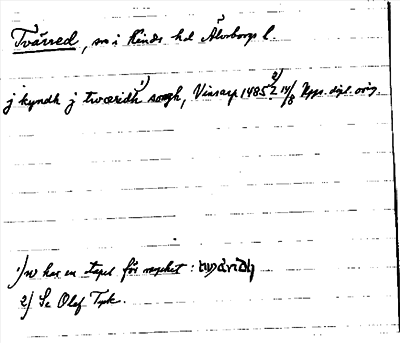 Tvärred, sn i Kinds hd Älvsborgs l.
j kyndh j twæridh 1) sogh, Vinsarp 1485 2)? 14/8 Upps. dipl. orig.
1) w har en stapel för mycket:
2) Se Olof Tysk.